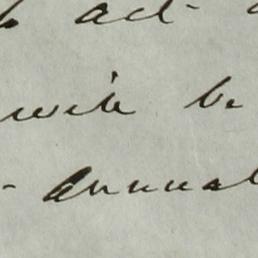 to act
will be
- annual